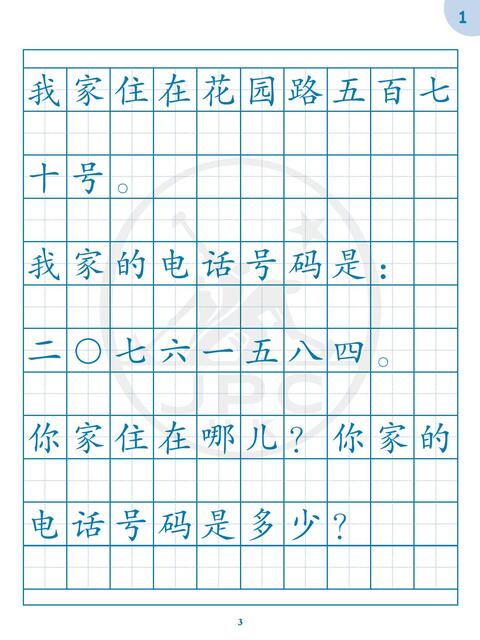 1
我家住在花园路五百七
十号。
我家的电话号码是：
二〇七六一五八四。
你家住在哪儿？你家的
电话号码是多少？
JPC
3